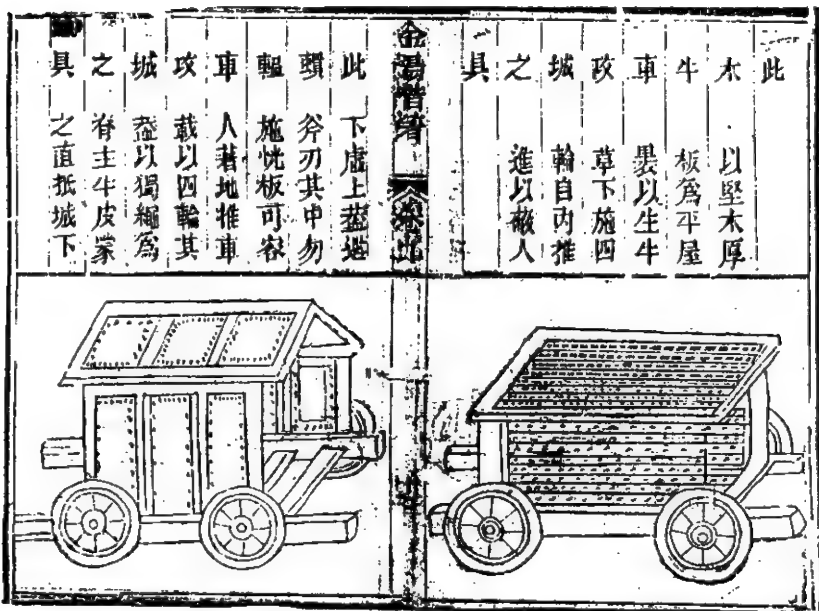 此木牛車攻城之具
以堅木厚
板爲平屋
裹以生牛
革下施四
輪自内推
進以蔽人
金湯借箸
此轒轀車攻城之具
下虛上葢
斧刃其中勿
施桄板可容
人著地推車
載以四輪其
葢以獨繩爲
脊主牛皮蒙
之直抵城下